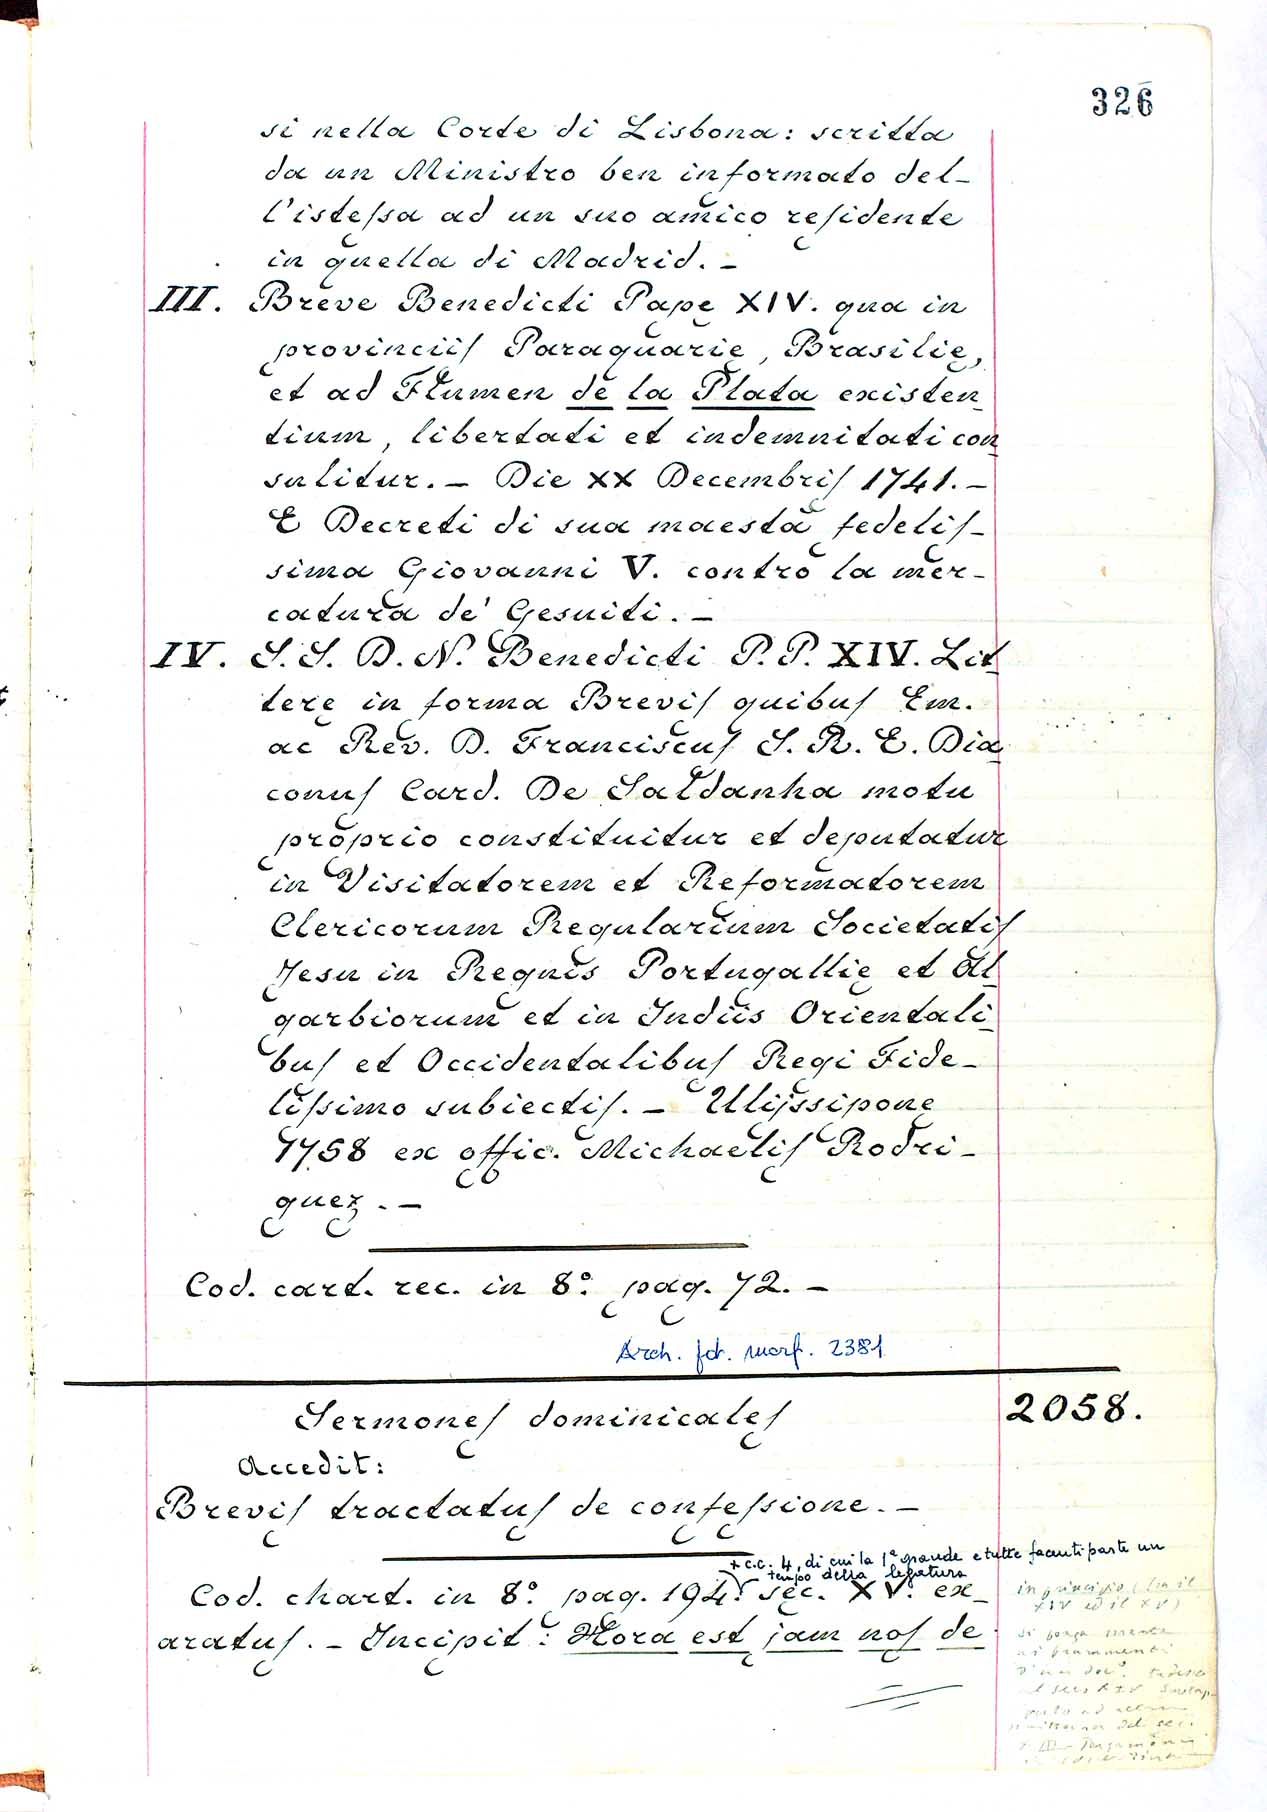 326
si nella Corte di Lisbona: scritta
da un Ministro ben informato del-
l'isteſsa ad un suo amico reſidente
in quella di Madrid. -
III. Breve Benedicti Papę XIV. qua in
provinciiſ Paraquarię, Brasilię,
et ad Flumen de la Plata existen-
tium, libertati et indemnitati con-
sulitur. - Die XX Decembriſ 1741. -
E Decreti di sua maestà fedeliſ-
sima Giovanni V. contro la mer-
catura de' Gesuiti. -
IV. S. S. D. N. Benedicti P. P. XIV. Lit-
terę in forma Breviſ quibuſ Em.
ac Rev. D. Franciscuſ S. R. E. Dia-
conuſ Card. De Saldanha motu
proprio constituitur et deputatur
in Visitatorem et Reformatorem
Clericorum Regularium Societatiſ
Jesu in Regnis Portugallię et Al-
garbiorum et in Indiis Orientali-
buſ et Occidentalibuſ Regi Fide-
liſsimo subiectiſ. - Ulijssiponę
1758 ex offic. Michaeliſ Rodri-
guez. -
Cod. cart. rec. in 8.º pag. 72. -
Arch. fot. 2381
Sermoneſ dominicaleſ 2058.
Accedit:
Breviſ tractatuſ de confeſsione. -
+ c.c. 4, di cui la 1ª grande e tutte facenti parte un
tempo della legatura
Cod. chart. in 8.º pag. 194. sec. XV. ex-
aratuſ. - Incipit: Hora est jam noſ de
in principio (tra il
XIV ed il XV)